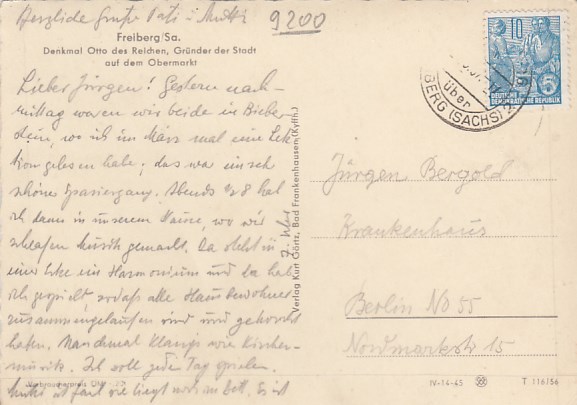 Herzliche Grüße Vati u. Mutti
9200
Freiberg/Sa.
Denkmal Otto des Reichen, Gründer der Stadt
auf dem Obermarkt
Lieber Jürgen! Gestern nach-
mittag waren wir beide in Bieber-
stein, wo ich im März mal eine Lek-
tion gelesen habe; das war ein sehr
schöner Spaziergang. Abends ½8 hab
ich dann in unserem Hause, wo wir
schlafen Musik gemacht. Da steht in
einer Ecke ein Harmonium und da hab
ich gespielt, sodaß alle Hausbewohner
zusammengelaufen sind und gehorcht
haben. Manchmal klangs wie Kirchen-
musik. Ich soll jeden Tag spielen.
Mutti ist faul wie liegt noch im Bett. Es ist
Verbraucherpreis DM
Verlag Kurt Görtz, Bad Frankenhausen (Kyffh.)
10
DEUTSCHE
DEMOKRATISCHE REPUBLIK
über
BERG (SACHS)
Jürgen Bergold
Krankenhaus
Berlin NO 55
Nordmarkstr 15
IV-14-45
T 116/56